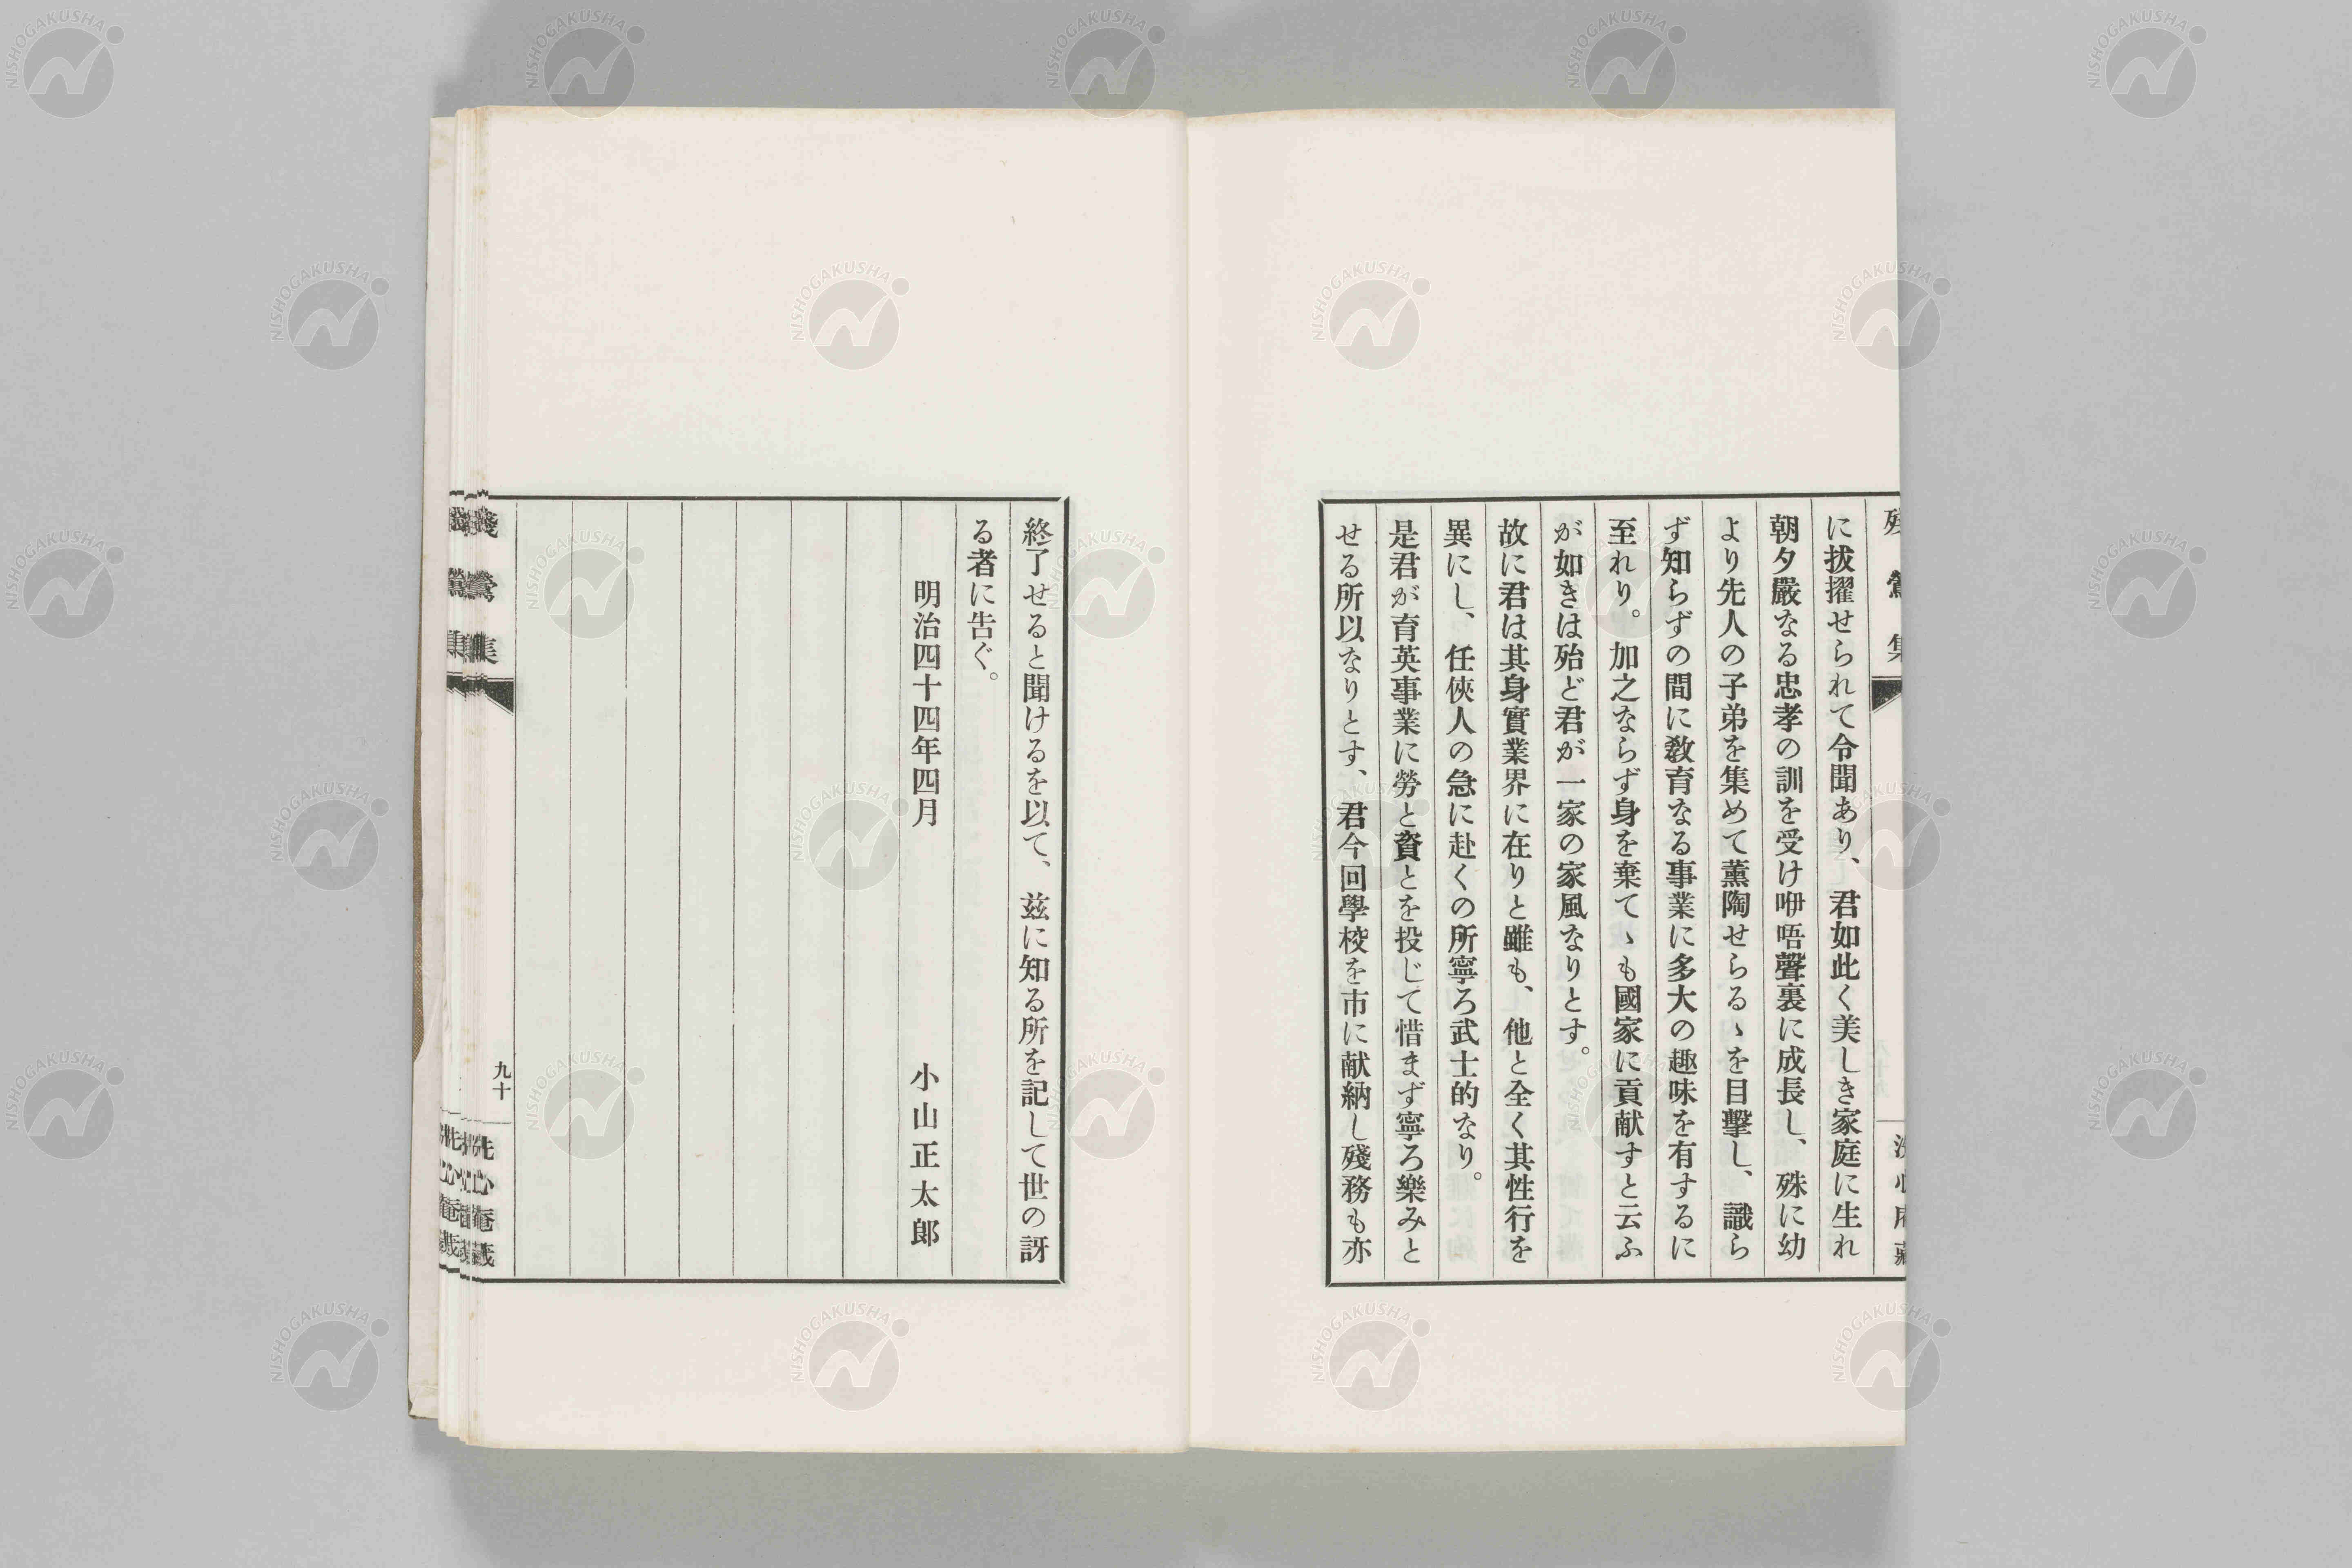 に拔擢せられて令聞あり、君如此く美しき家庭に生れ
朝夕嚴なる忠孝の訓を受け咿唔聲裏に成長し、殊に幼
より先人の子弟を集めて薫陶せらるゝを目擊し、識ら
ず知らずの間に敎育なる事業に多大の趣味を有するに
至れり。加之ならず身を棄てゝも國家に貢献すと云ふ
が如きは殆ど君が一家の家風なりとす。
故に君は其身實業界に在りと雖も、他と全く其性行を
異にし、任俠人の急に赴くの所寧ろ武士的なり。
是君が育英事業に勞と資とを投じて惜まず寧ろ樂みと
せる所以なりとす、君今回學校を市に献納し殘務も亦
終了せると聞けるを以て、茲に知る所を記して世の訝
る者に告ぐ。
明治四十四年四月
小山正太郎
九十
NISHOGAKUSHA